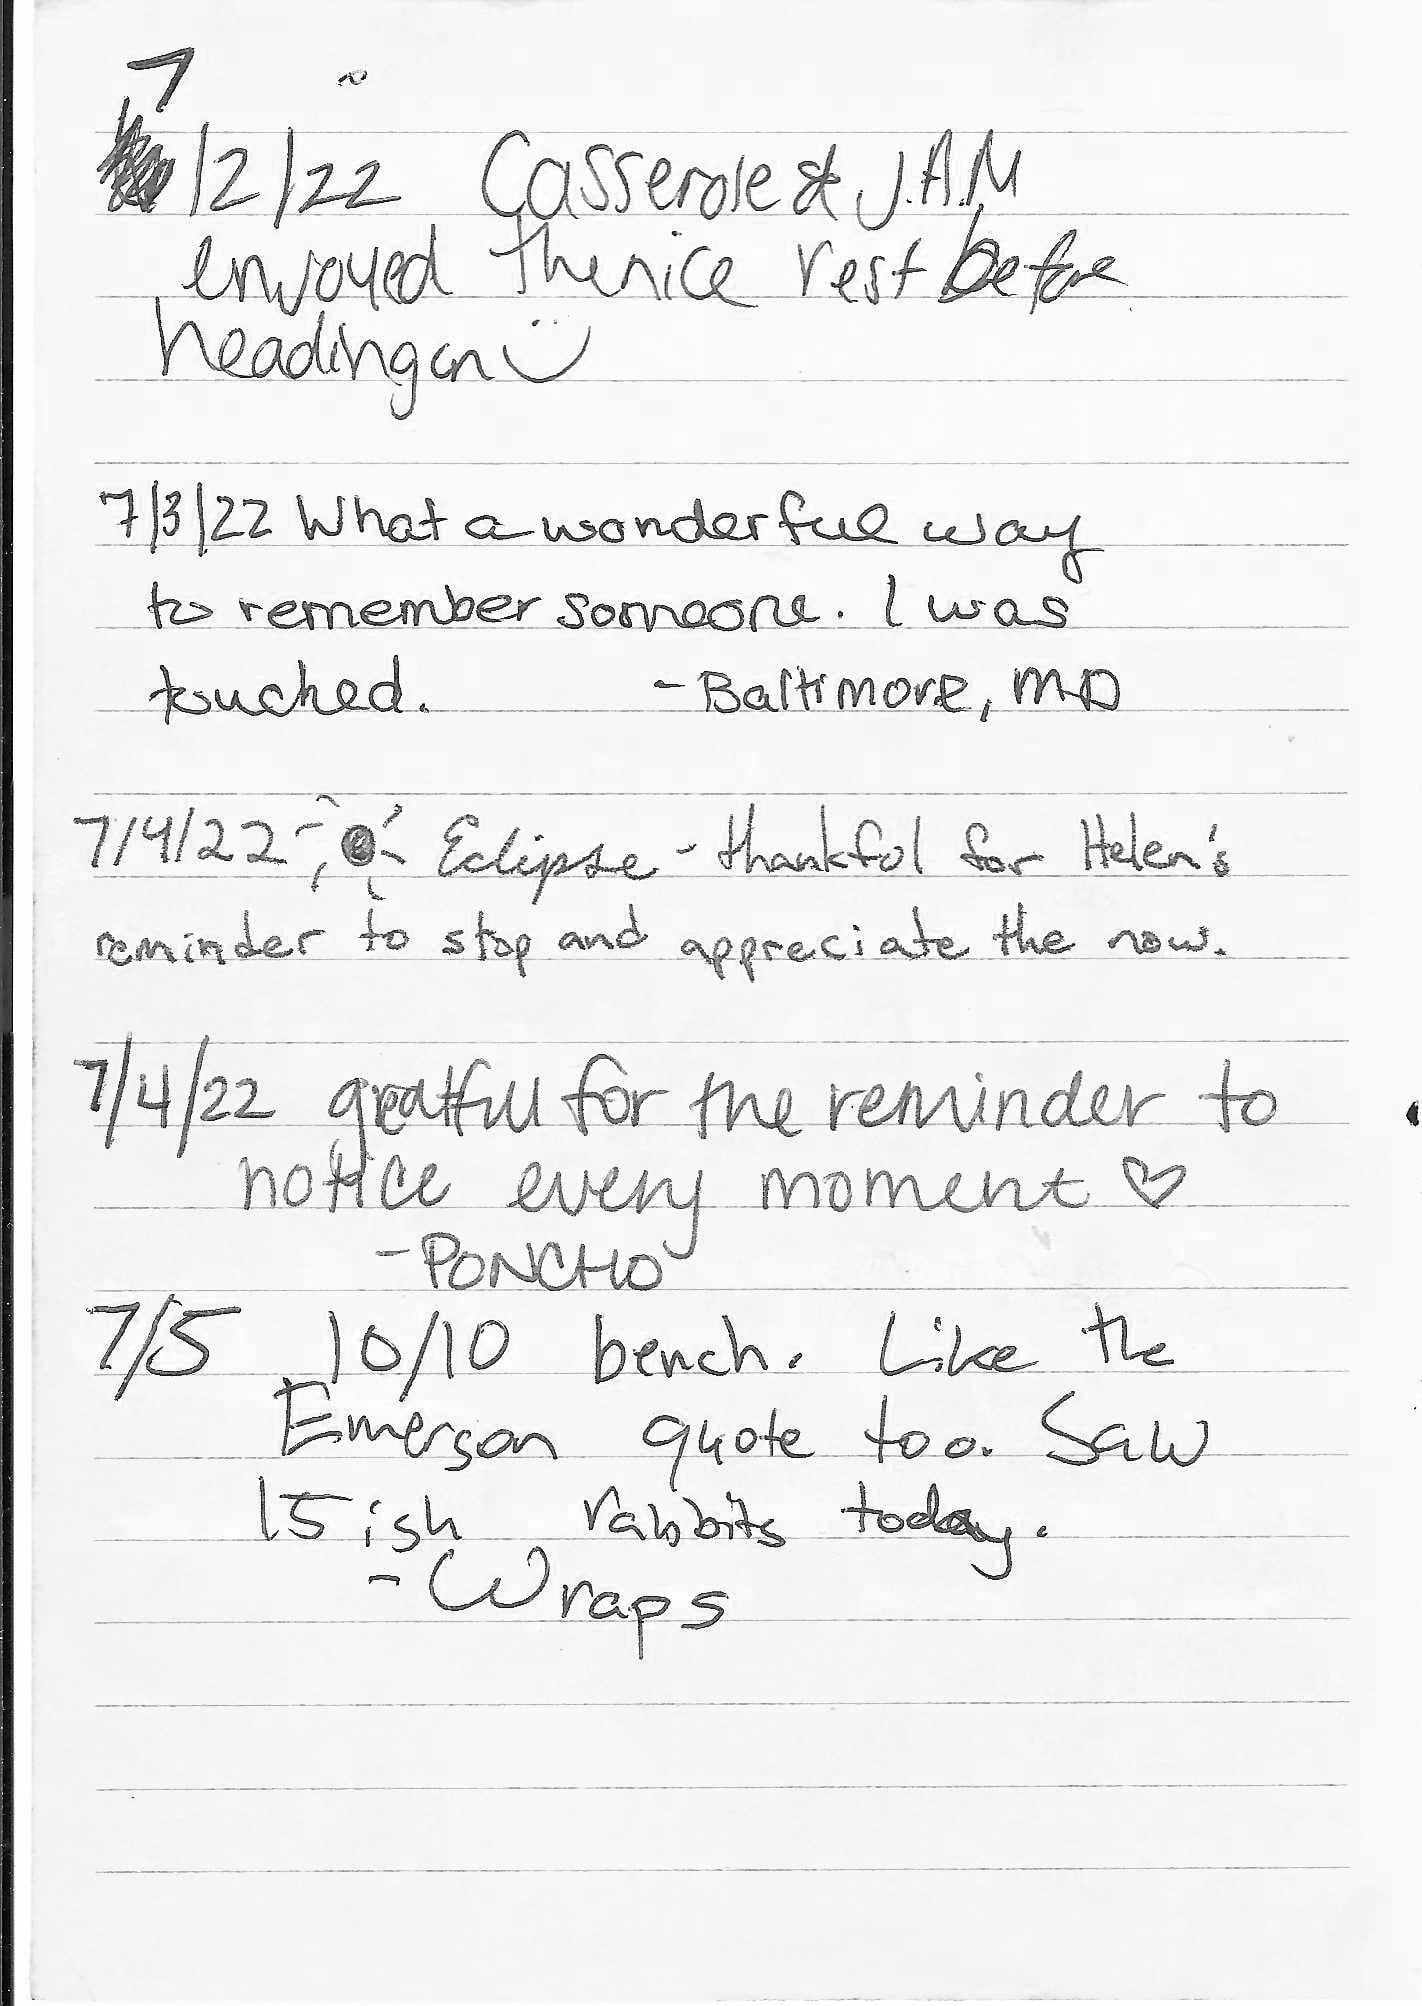 7
/2/22 Casserole & J.A.M
enjoyed the nice rest before
heading on
7/3/22 What a wonderful way
to remember someone. I was
touched. - Baltimore, MD
7/4/22 Eclipse - thankful for Helen's
reminder to stop and appreciate the now.
7/4/22 greatfull for the reminder to
notice every moment ♡
- PONCHO
7/5 10/10 bench. Like the
Emerson quote too. Saw
15ish rabbits today.
- Wraps